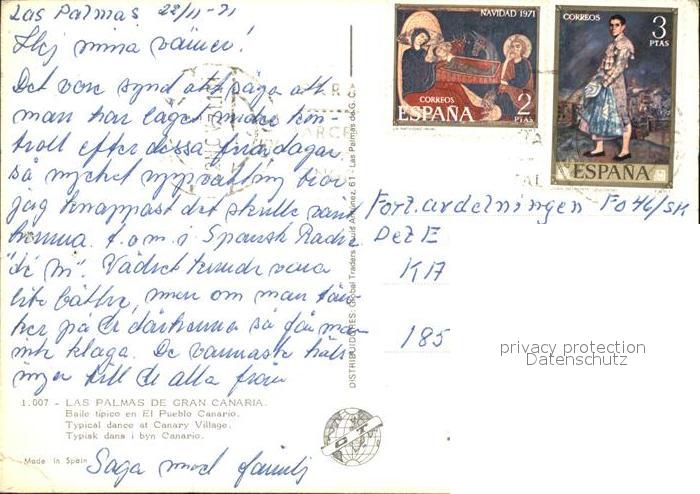 Las Palmas 22/11-71
Hej mina vänner!
Det vore synd att säga att
man har läget under kon-
troll efter dessa fyra dagar
så mycket uppvaktning tror
jag knappast det skulle vara
hemma. t.o.m. i Spansk Radio
Vädret kunde vara
lite bättre, men om man tän-
ker på de därhemma så får man
inte klaga. De varmaste häls-
ningar till de alla från
Saga med familj
NAVIDAD 1971
CORREOS
ESPAÑA 2
PTAS
CORREOS 3
PTAS
ESPAÑA
Fort.avdelningen FO46/SK
Det E
K17
185
DISTRIBUIDORES: Global Traders Luis Antunez, 61 - Las Palmas de G. C.
1.007 - LAS PALMAS DE GRAN CANARIA.
Baile típico en El Pueblo Canario.
Typical dance at Canary Village.
Typisk dans i byn Canario.
Made in Spain
privacy protection
Datenschutz